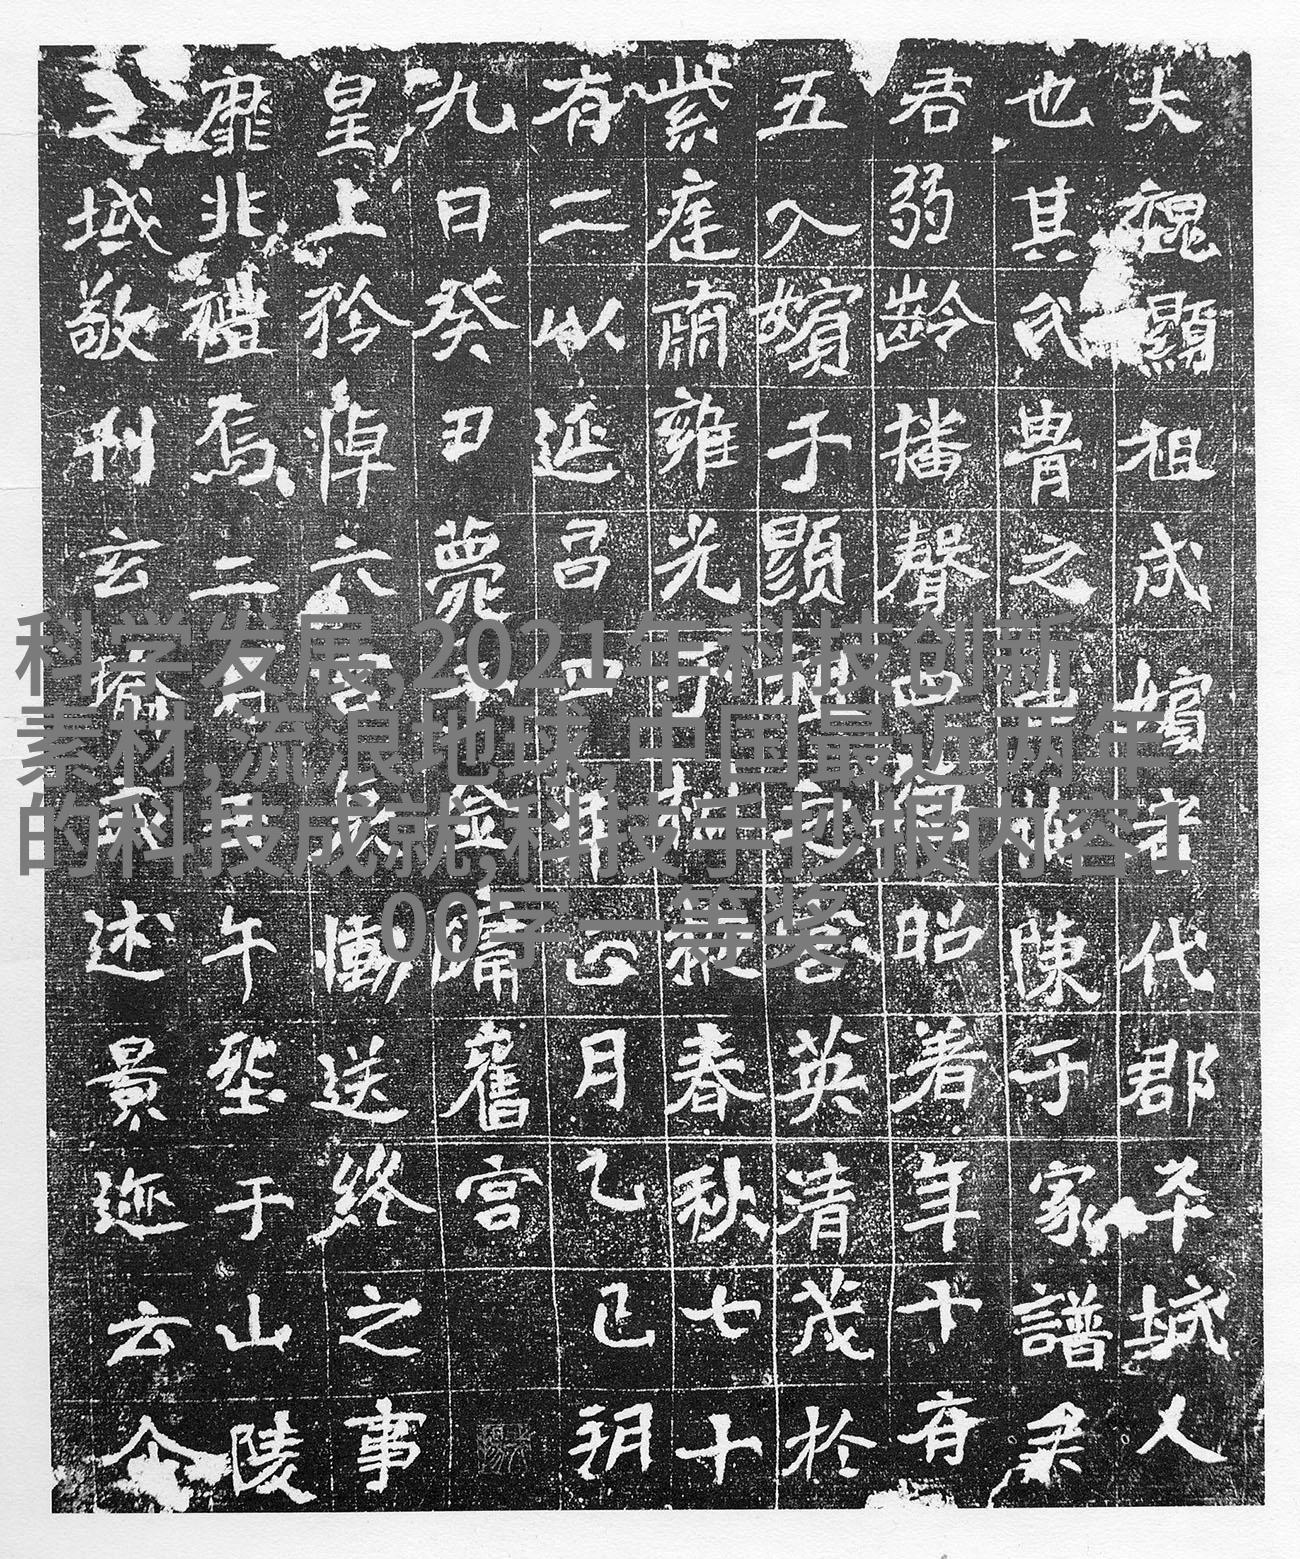 大魏顯祖成嬪者代郡平城人
也其氏胄之由備陳于家譜
君弱齡播聲昭著年十有
五入嬪于顯祖英清茂於
紫庭肅雍光于椒掖春秋七十
有二以延昌四年正月乙巳朔
九日癸丑薨于金墉舊宮
皇上矜悼六宮哀慟送終之事
靡非禮焉二月壬午塟于山陵
之域敬刊玄瑜式述景迹云尒
科学发展,2021年科技创新
素材,流浪地球,中国最近两年
的科技成就,科技手抄报内容1
00字一等奖